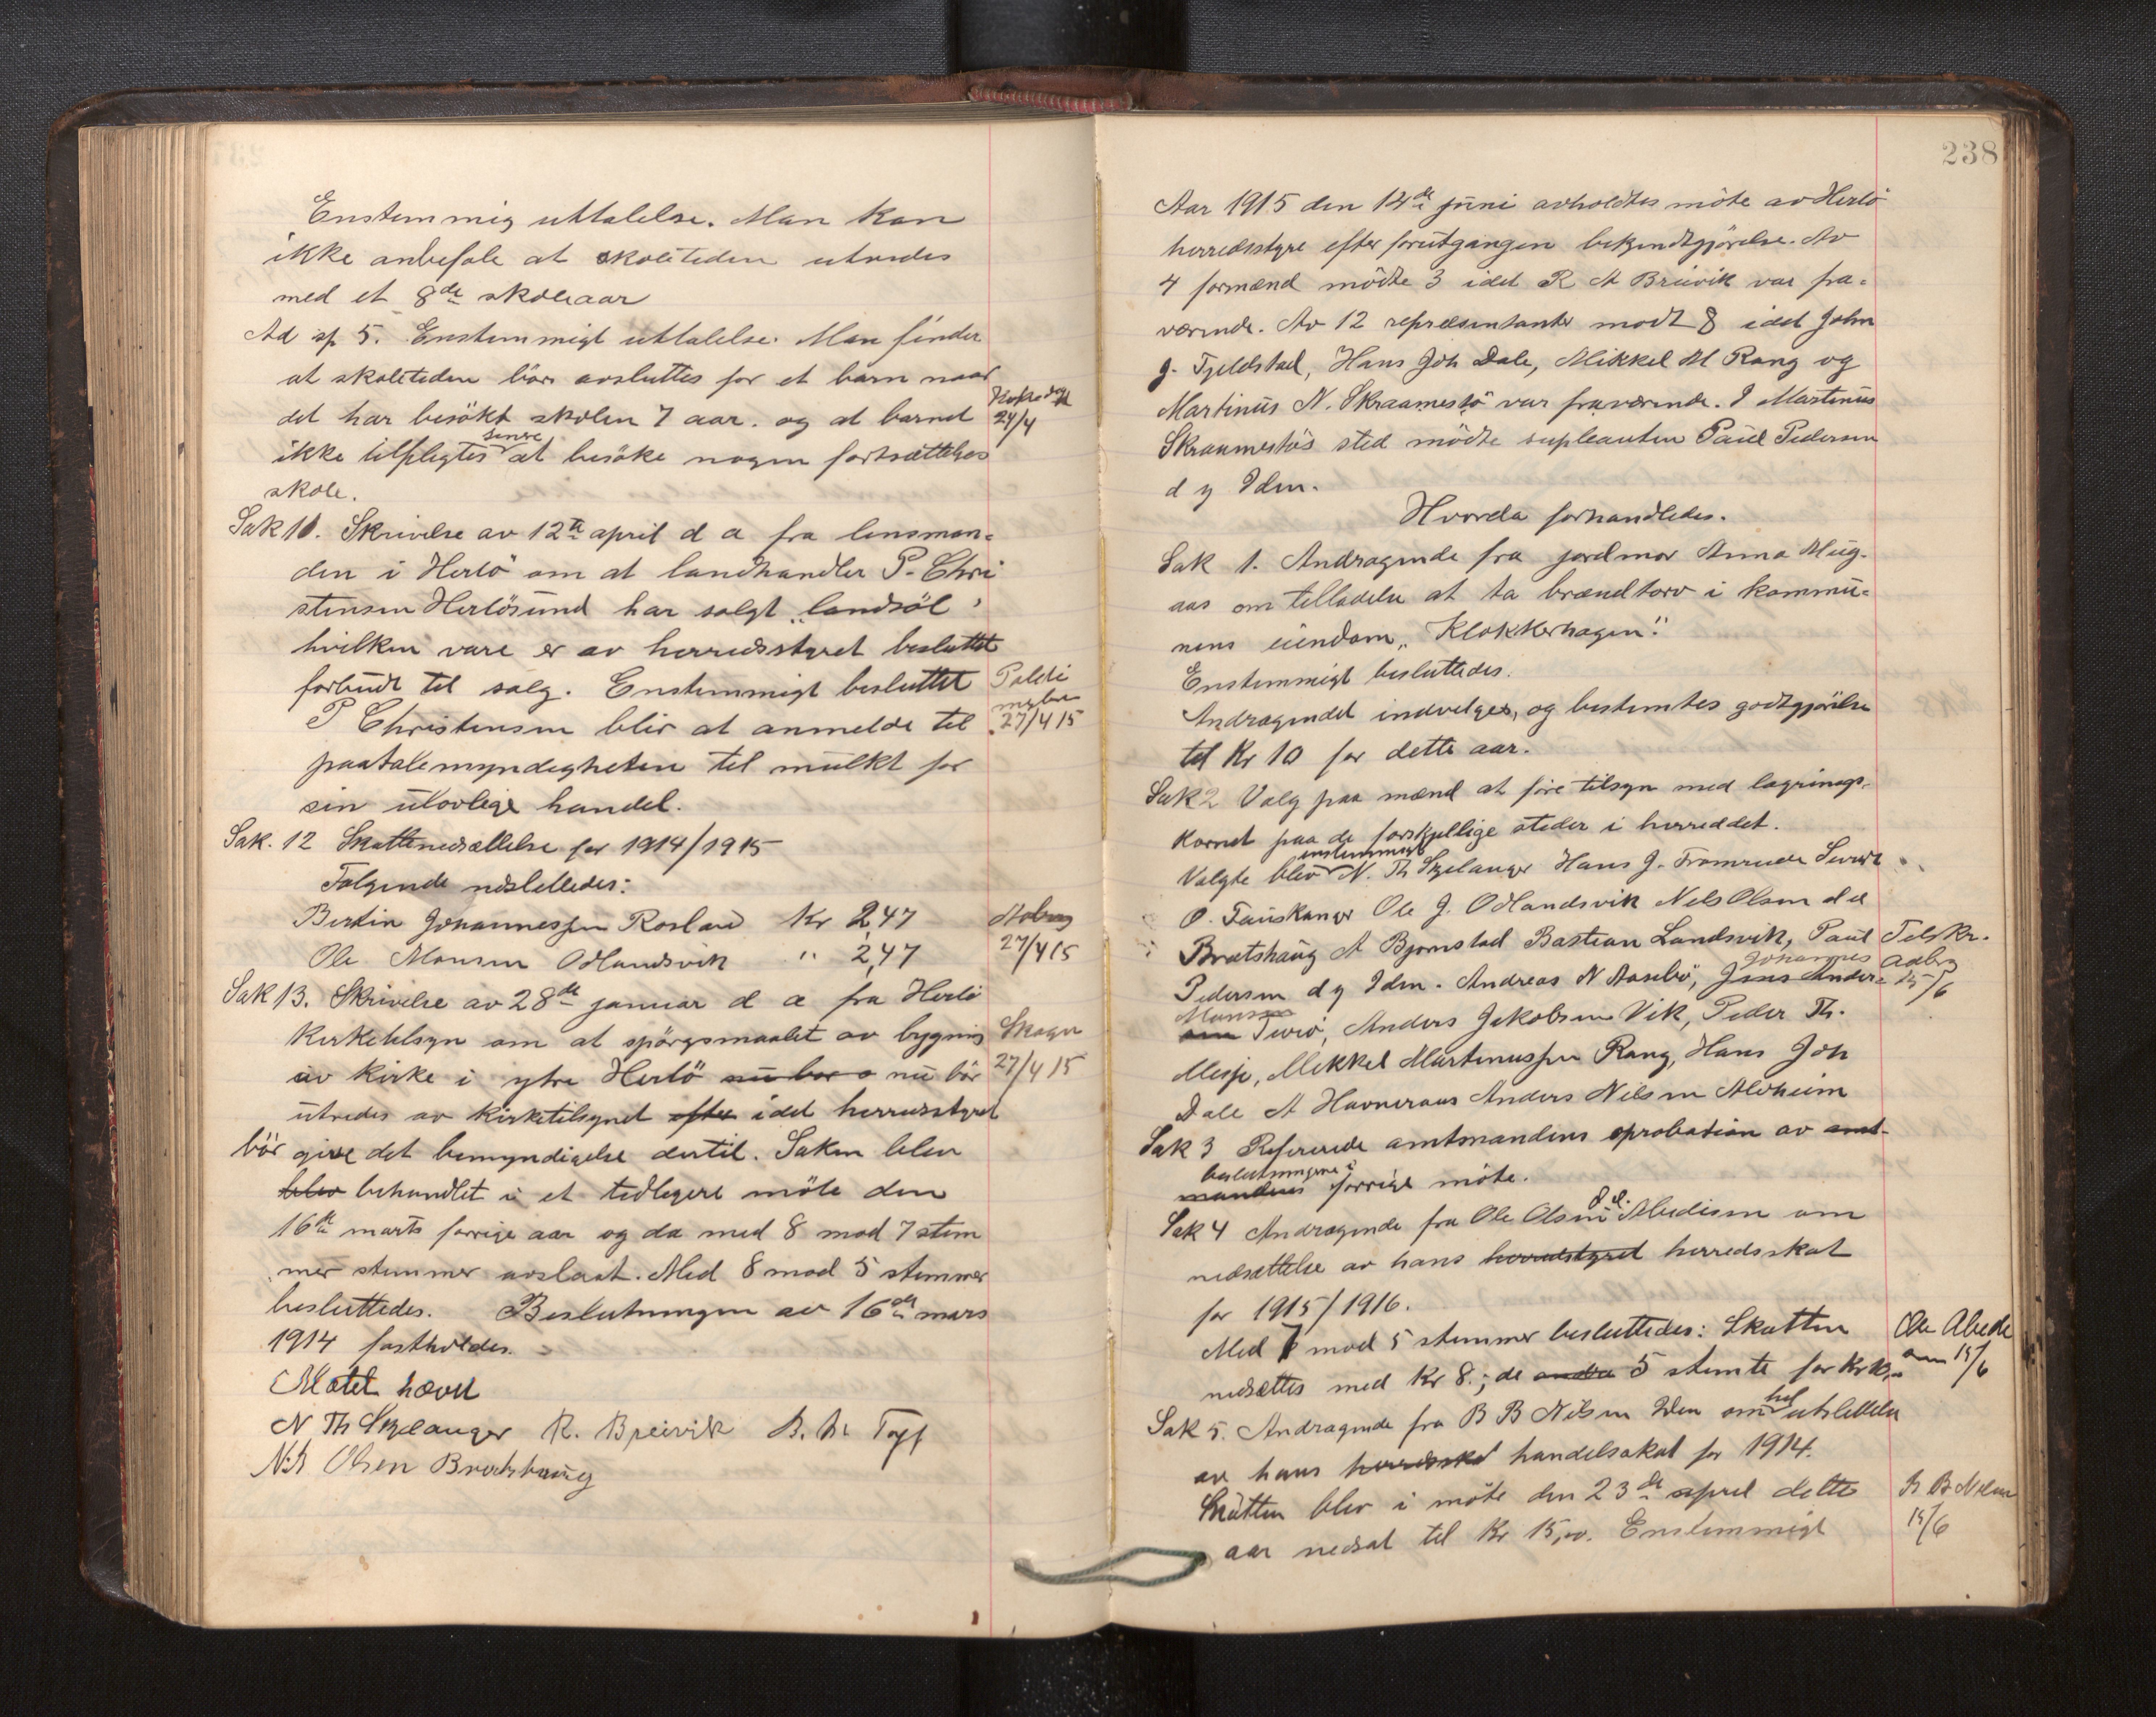 Enstemmig uttalelse. Man kan
ikke anbefale at skoletiden utvides
med et 8de skoleaar
Ad sp 5. Enstemmigt uttalelse. Man finder
at skoletiden bör avsluttes for et barn naar
det har besökt skolen 7 aar. og at barnet
24/4
senere
ikke tilpligtes at besöke nogen fortsættelses
skole.
Sak 11. Skrivelse av 12te april d a fra lensman-
den i Herlö om at landhandler P. Chri
stensen Herlösund har solgt "landsöl"
hvilken vare er av herredsstyret besluttet
forbudt til salg. Enstemmigt besluttet
Politi
mester
27/4 15
P Christensen blir at anmelde til
paatalemyndigheten til mulkt for
sin ulovlige handel.
Sak. 12 Skattenedsættelse for 1914/1915
Følgende utslettedes:
Bertin Johannessen Rosland Kr 2,47
Ole Monsen Odlandsvik " 2,47
27/4 15
Sak 13. Skrivelse av 28de januar d a fra Herlö
Kirketilsyn om at spörgsmaalet av bygning
Skogn
27/4 15
av kirke i ytre Herlö nu bör nu bör
utredes av kirketilsynet efter idet herredsstyret
bör give det bemyndigelse dertil. Saken blev
blev behandlet i et tidligere möte den
16de marts forrige aar og da med 8 mod 7 stem
mer stemmer avslaat. Med 8 mod 5 stemmer
besluttedes. Beslutningen av 16de mars
1914 fastholdes.
Mötet hævet
N Th Skjelanger R. Breivik B. M. Toft
N. Olsen Bratshaug
238
Aar 1915 den 14de juni avholdtes möte av Herlö
herredsstyre efter forutgangen bekjendtgjörelse. Av
4 formænd mödte 3 idet R A Breivik var fra-
værende. Av 12 repræsentanter mödt 8 idet John
J. Fjeldstad, Hans Joh Dale, Mikkel M Rong og
Martinus N. Skraamestö var fraværende. I Martinus
Skraamestös sted mödte supleanten Paul Pedersen
d y Iden.
Hvorda forhandledes.
Sak 1. Andragende fra jordmor Anna Mug-
aas om tilladelse at ta brændtorv i kommu-
nens eiendom "Klokkerhagen".
Enstemmigt besluttedes.
Andragendet indvelges, og bestemtes godtgjörelse
til Kr 10 for dette aar.
Sak 2 Valg paa mænd at före tilsyn med lagrings-
kornet paa de forskjellige steder i herreddet.
enstemmigt
Valgte blev N. Th Skjelanger Hans J. Tromrude Sivert
O. Fauskanger Ole J. Odlandsvik Nels Olsen d e
Bratshaug A Bjørnstad Bastian Landsvik, Paul
Telskr.
Aalby
15/6
Johannes
Pedersen d y Iden. Andreas N Aasebö, Jens Anders-
Monsen
en Turö, Anders Jakobsen Vik, Peder Th.
Misje, Mikkel Martinussen Rong, Hans Joh
Dale A Havneraas Anders Nilsen Alvheim
Sak 3 Refererede amtmandens aprobation av amt-
beslutningene i
mandens forrige möte.
Sak 4 Andragende fra Ole Olsen d e. Abedisen om
nedsættelse av hans herredstyret herredsskat
for 1915/1916.
Med 7 mod 5 stemmer besluttedes: Skatten
nedsættes med Kr 8.; de andre 5 stemte for Kr
Ole Abede
15/6
Sak 5. Andragende fra B B Nilsen Iden om hel utslettelse
av hans herredsskat handelsskat for 1914.
Skatten blev i möte den 23de april dette
aar nedsat til Kr 15,00. Enstemmigt
B B Nilsen
15/6